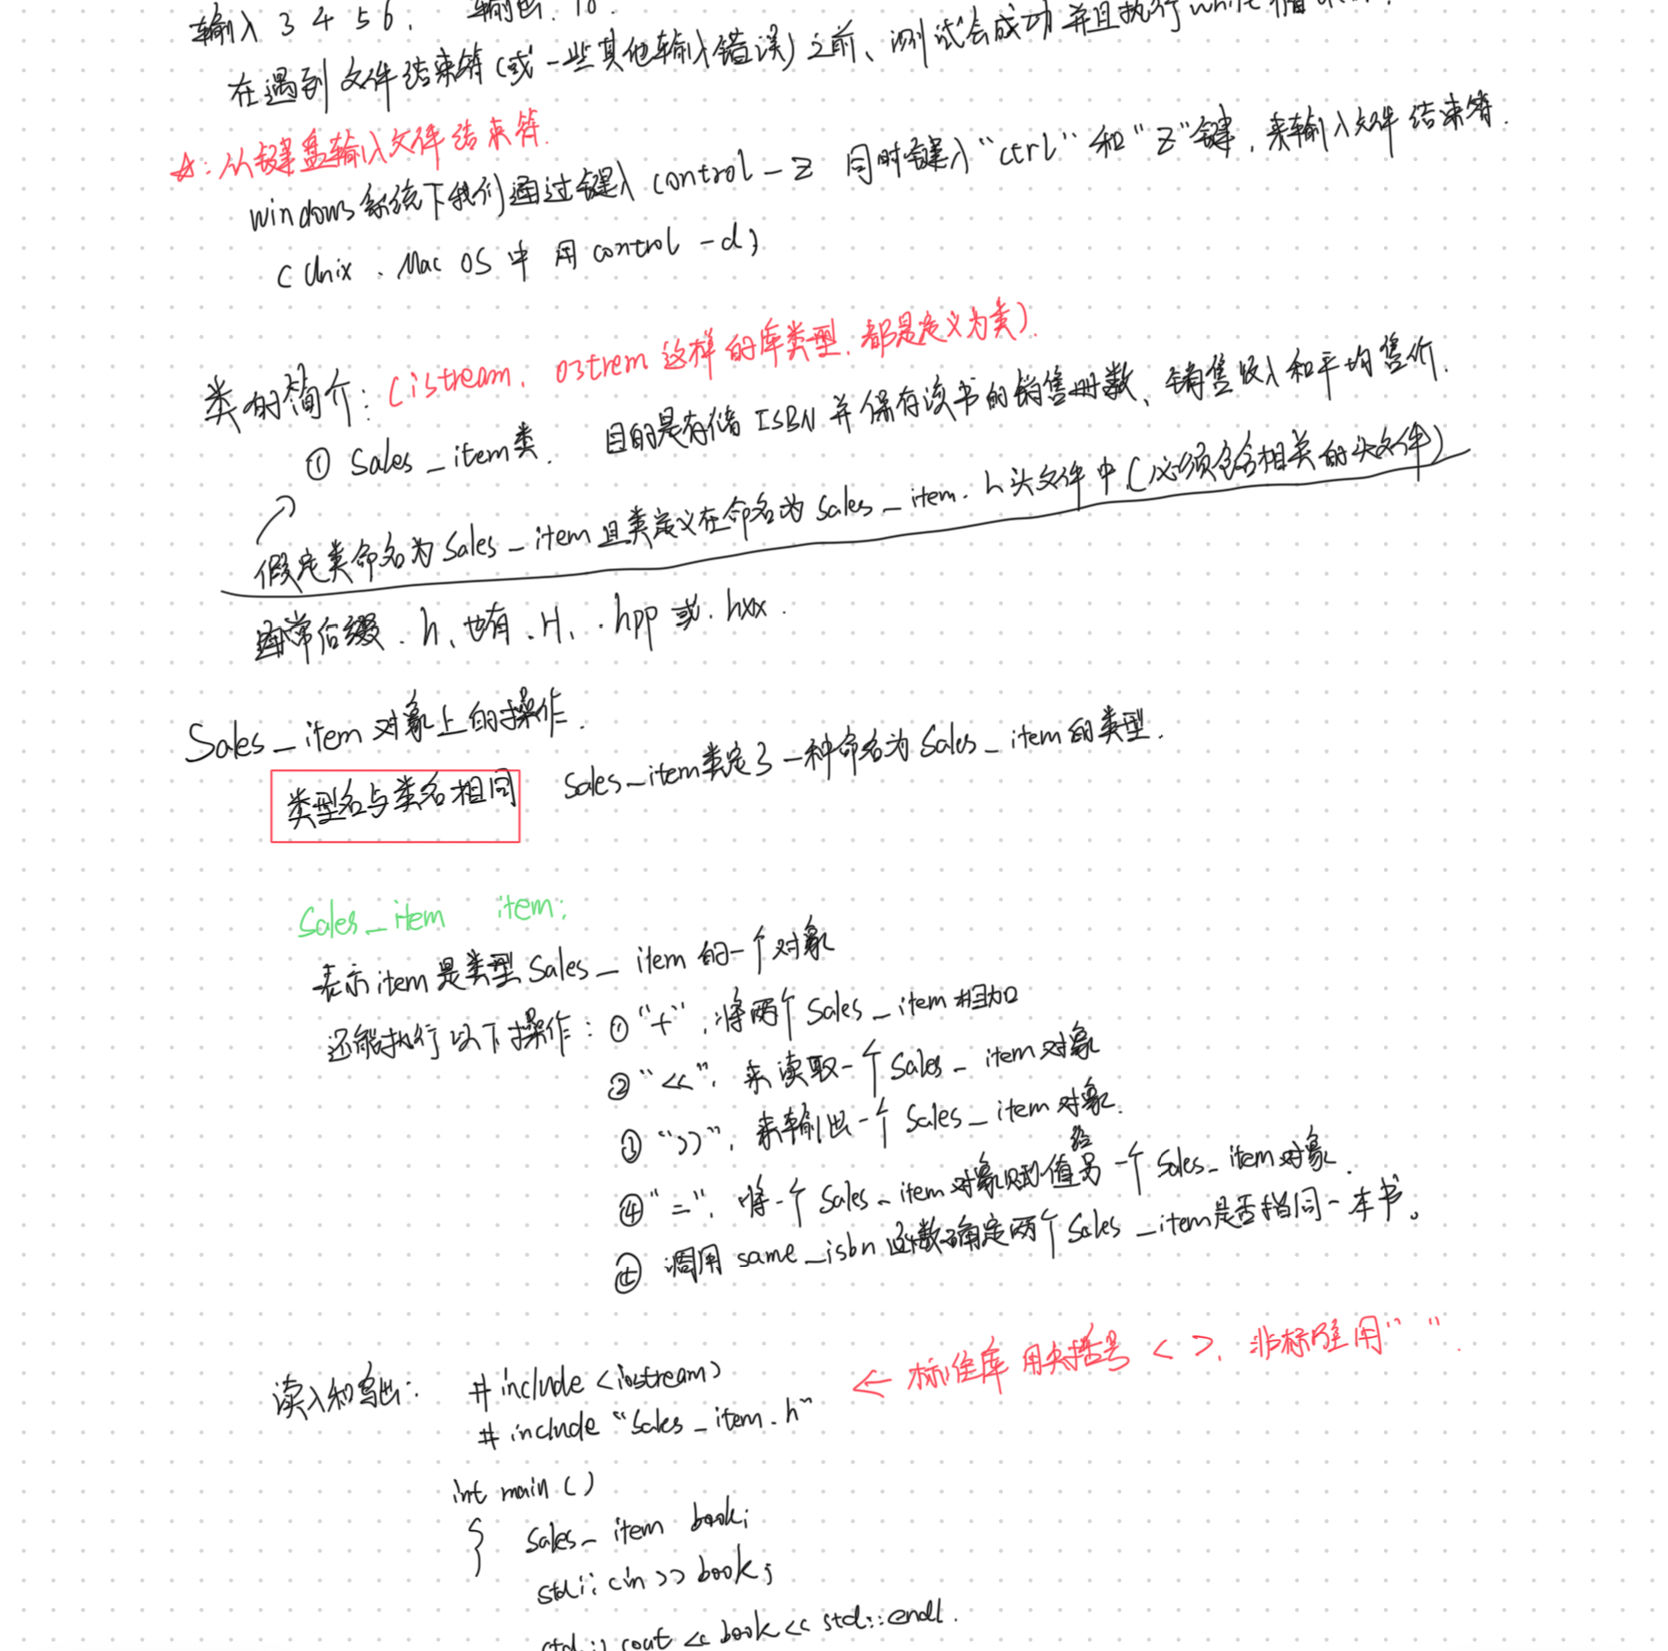 输入 3 4 5 6, 输出: 18.
在遇到文件结束符(或一些其他输入错误)之前、测试会成功并且执行while循
☆: 从键盘输入文件结束符.
windows系统下我们通过键入 control - Z 同时键入“ctrl”和“Z”键, 来输入文件结束符.
(Unix . Mac OS 中 用 control - d)
类的简介: (istream, ostrem 这样的库类型, 都是定义为类).
① Sales_item类. 目的是存储 ISBN 并保存该书的销售册数、销售收入和平均售价.
假定类命名为 Sales_item 且类定义在命名为 Sales_item.h 头文件中.(必须包含相关的头文件)
通常后缀 .h、也有 .H、.hpp 或 .hxx .
Sales_item 对象上的操作.
类型名与类名相同 Sales_item类定了一种命名为 Sales_item 的类型.
Sales_item item;
表示 item 是类型 Sales_item 的一个对象
还能执行以下操作: ① “+”, 将两个 Sales_item 相加
② “<<”, 来读取一个 Sales_item 对象
③ “>>”, 来输出一个 Sales_item 对象.
④ “=”, 将一个 Sales_item 对象赋值给另一个 Sales_item 对象.
⑤ 调用 same_isbn 函数确定两个 Sales_item 是否指同一本书。
读入和写出: #include <iostream> ← 标准库 用尖括号 < >, 非标准用“ ”.
#include “Sales_item.h”
int main ()
{ Sales_item book;
std::cin >> book;
std::cout << book << std::endl.